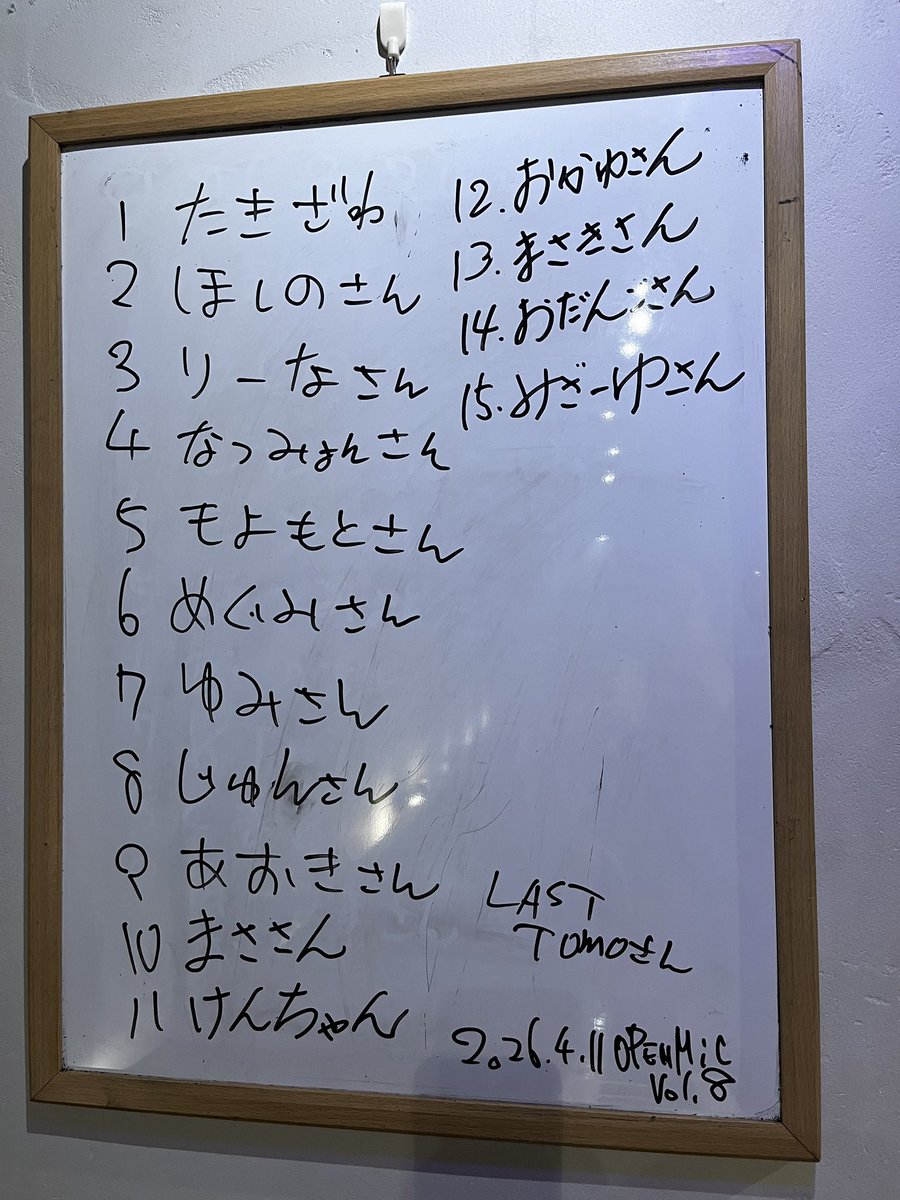 1 たきざわ
2 ほしのさん
3 りーなさん
4 なつみょんさん
5 もよもとさん
6 めぐみさん
7 ゆみさん
8 じゅんさん
9 あおきさん
10 まささん
11 けんちゃん
12. おかゆさん
13. まさきさん
14. おだんごさん
15. みざーゆさん
LAST
TOMOさん
2026.4.11 OPEN MiC
Vol.8